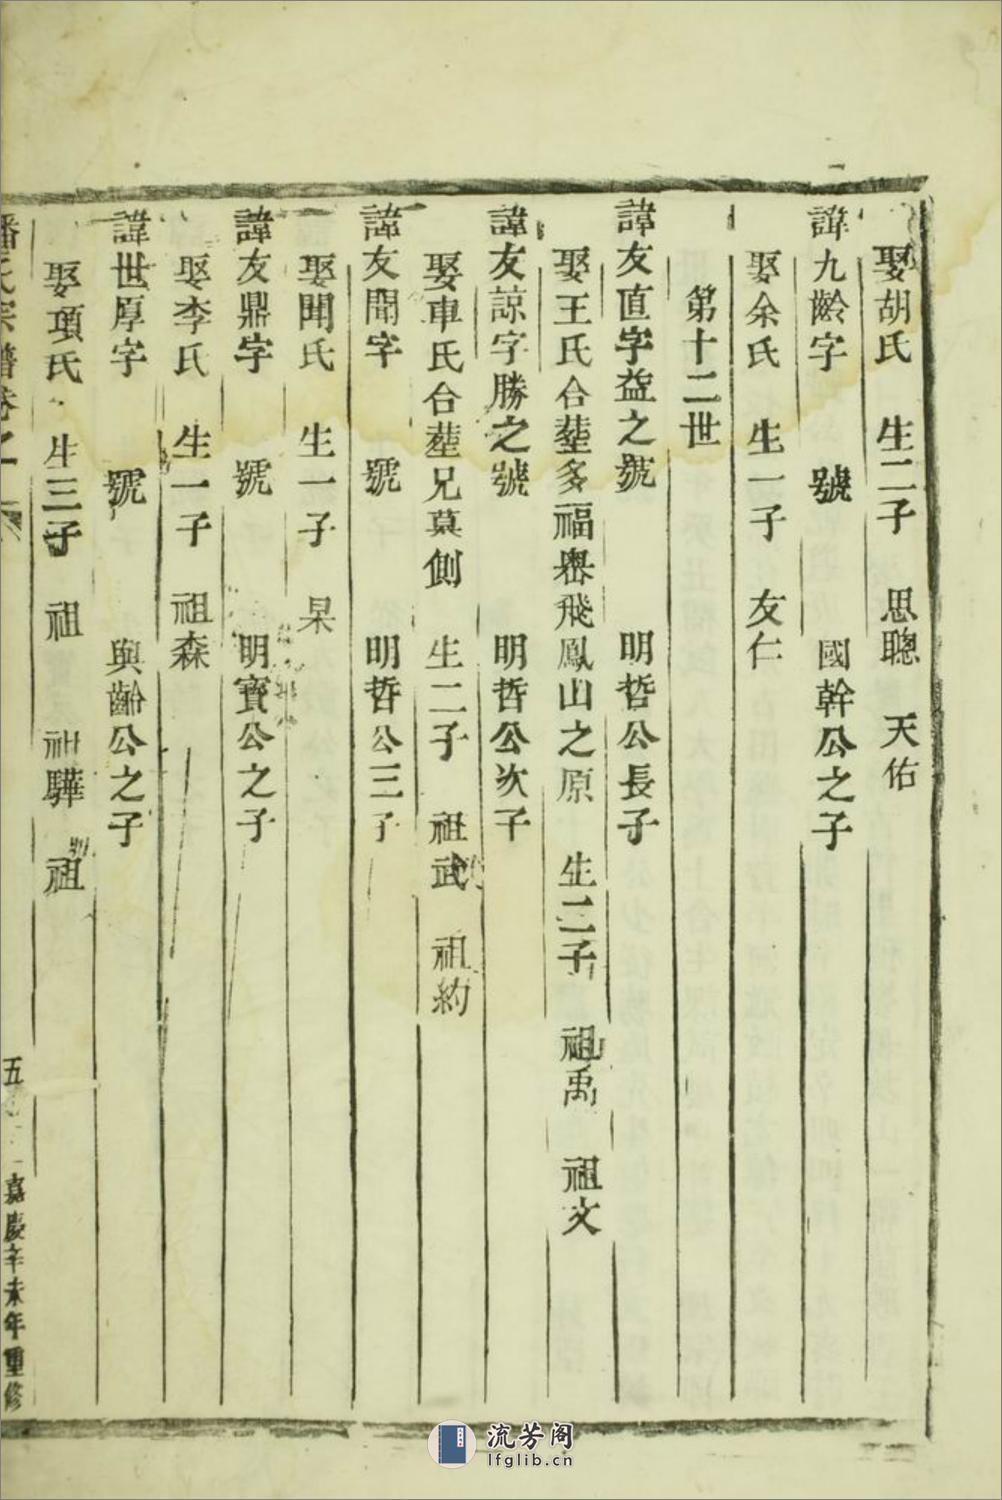 娶胡氏 生二子 思聰 天佑
諱九齡字 號 國幹公之子
娶余氏 生一子 友仁
第十二世
諱友直字益之號 明哲公長子
娶王氏合塟多福嶴飛鳳山之原 生二子 祖禹 祖文
諱友諒字勝之號 明哲公次子
娶車氏合塟兄墓側 生二子 祖武 祖約
諱友聞字 號 明哲公三子
娶聞氏 生一子 杲
諱友鼎字 號 明寶公之子
娶李氏 生一子 祖森
諱世厚字 號 與齡公之子
娶項氏 生三子 祖 祖驊 祖
潘氏宗譜卷之一 五 嘉慶辛未年重修
流芳阁
lfglib.cn